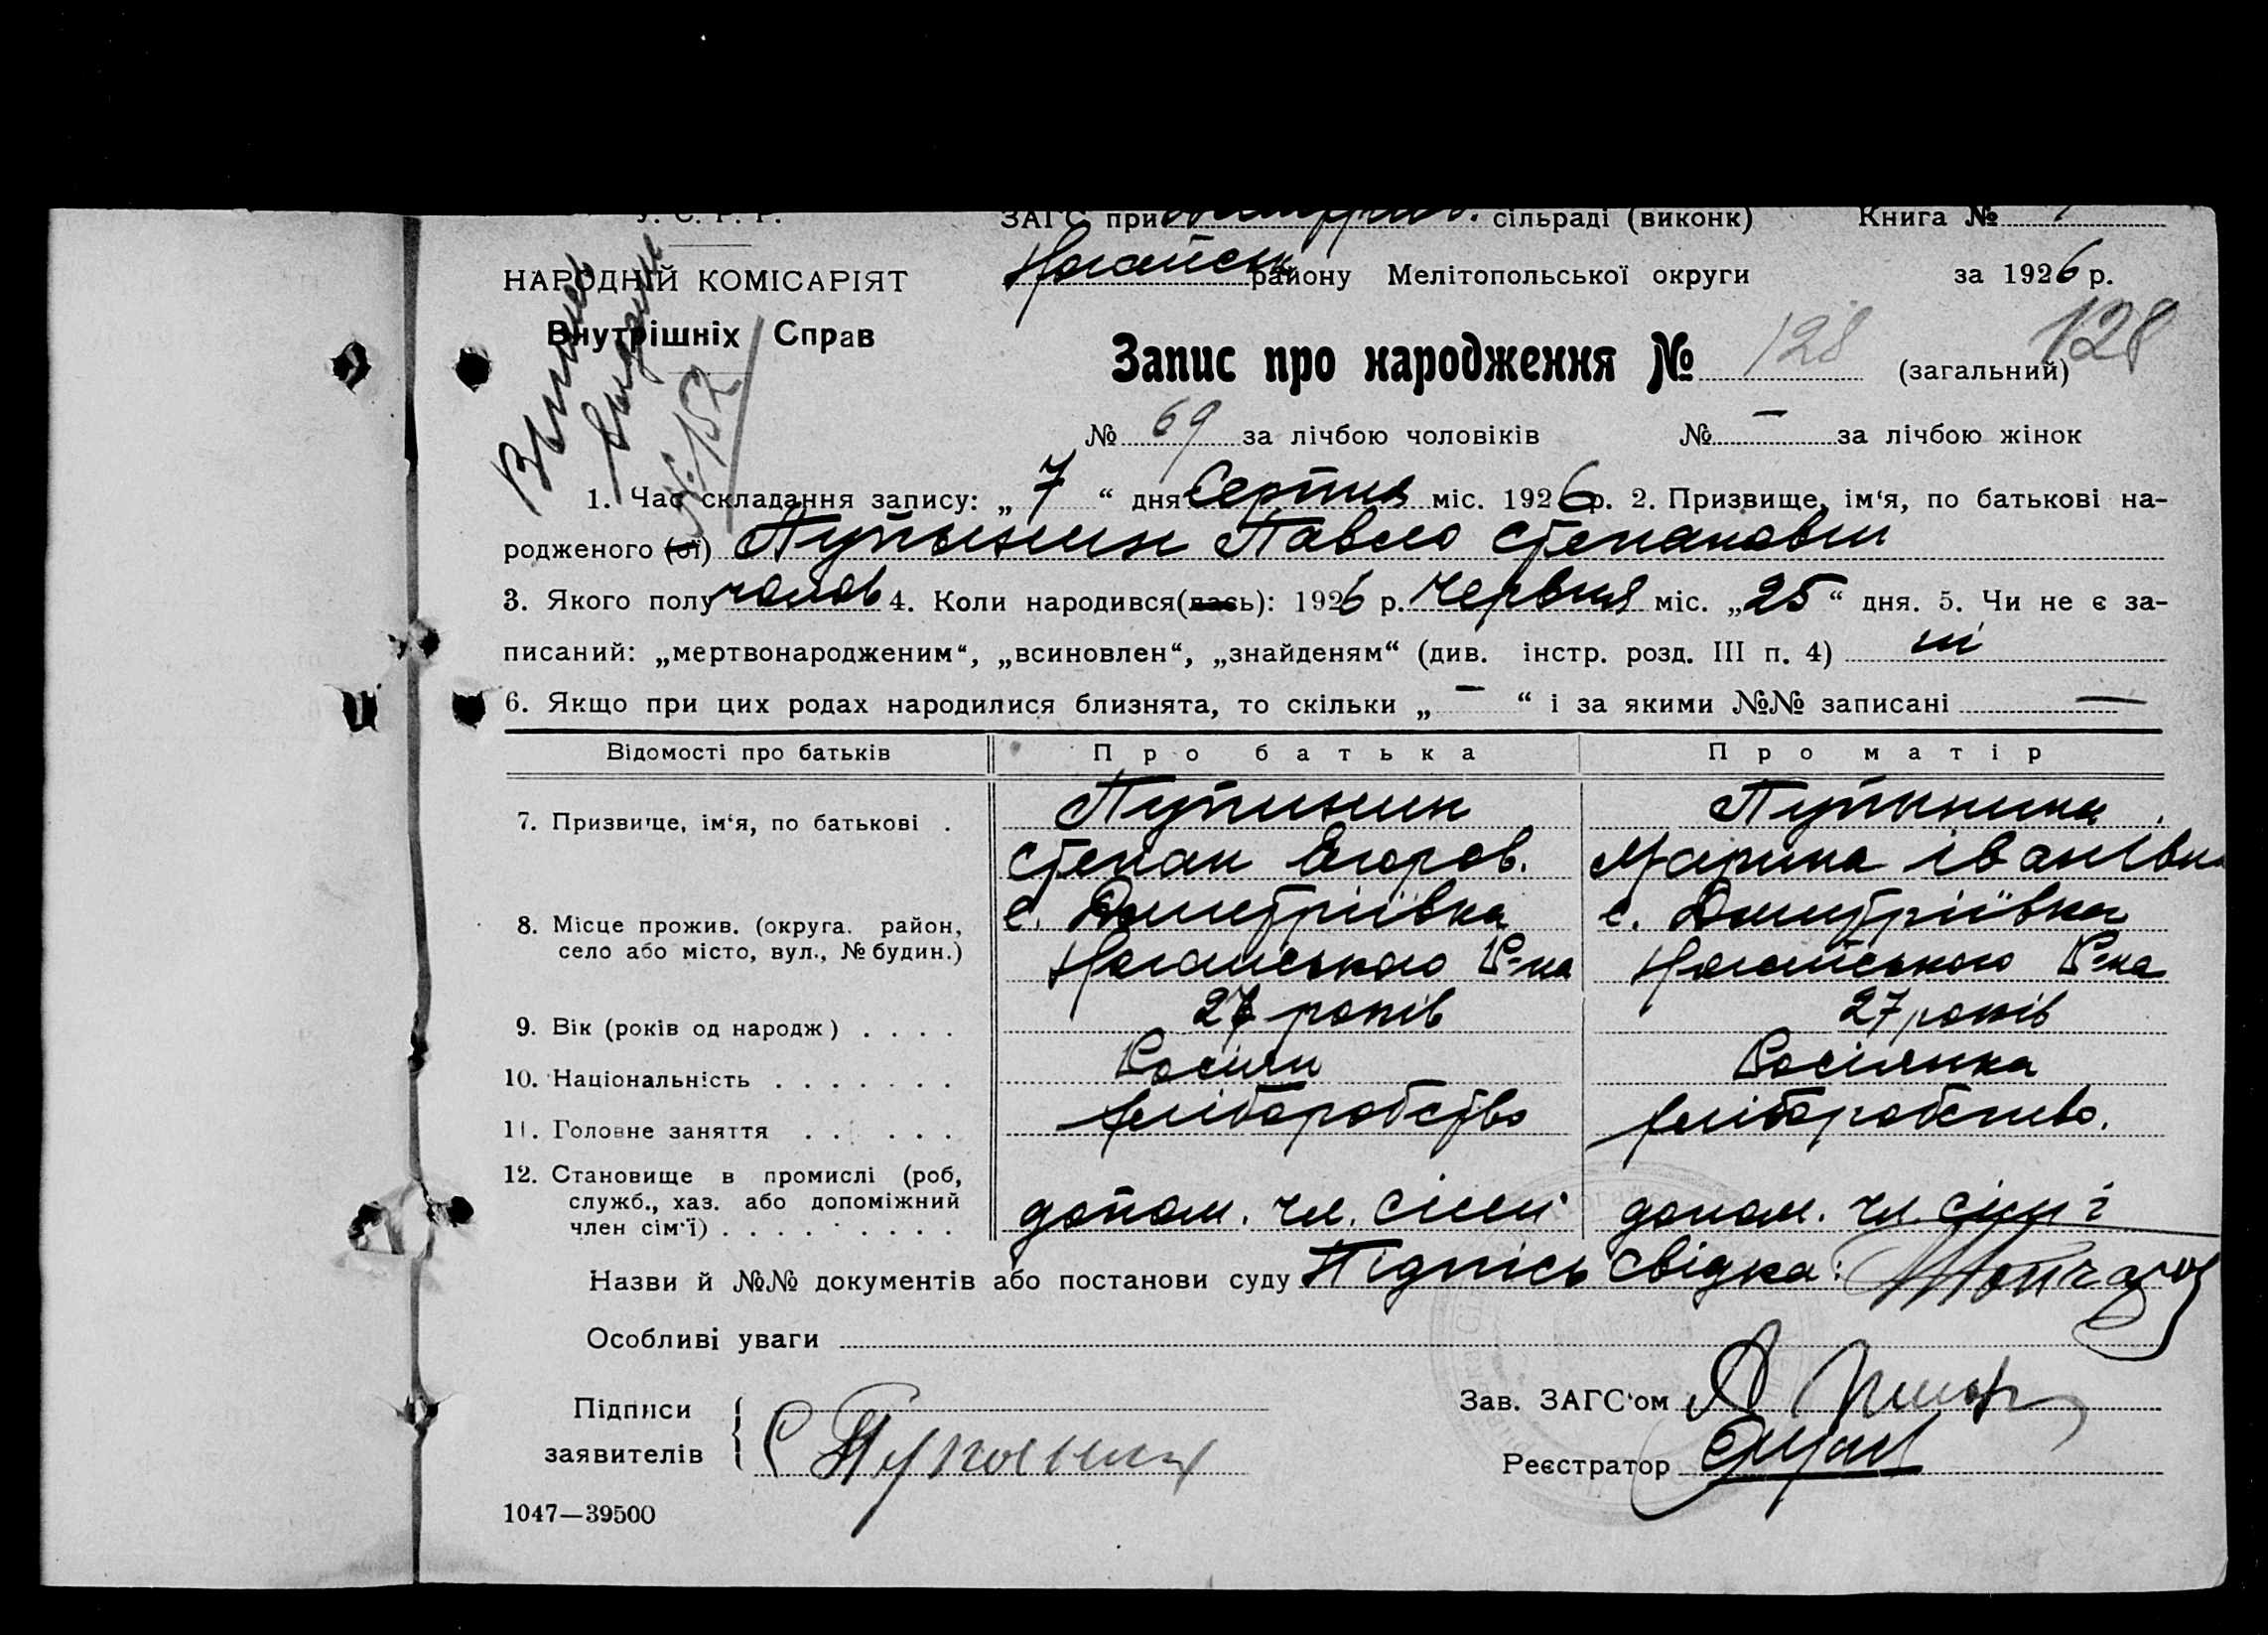 У. С. Р. Р. ЗАГС при сільраді (виконк) Книга №
НАРОДНІЙ КОМІСАРІЯТ Ногайськ району Мелітопольської округи за 1926 р.
Внутрішніх Справ
Запис про народження № 128 (загальний) 128
№ 69 за лічбою чоловіків № — за лічбою жінок
1. Час складання запису: „ 7 “ дня Серпня міс. 1926 р. 2. Призвище, ім‘я, по батькові на-
родженого (ої) Путынин Павло Степанович
3. Якого полу чолов 4. Коли народився(лась): 1926 р. Червня міс. „25“ дня. 5. Чи не є за-
писаний: „мертвонародженим“, „всиновлен“, „знайденям“ (див. інстр. розд. III п. 4) ні
6. Якщо при цих родах народилися близнята, то скільки „ — “ і за якими №№ записані —
Відомості про батьків Про батька Про матір
7. Призвище, ім‘я, по батькові . Путинин Путынина
Степан Егоров. Марина Іванівна
8. Місце прожив. (округа, район, с. Дмитріївка с. Дмитріївка
село або місто, вул., № будин.) Ногайського Р-на Ногайського Р-на
9. Вік (років од народж) . . . . 27 років 27 років
10. Національність . . . . . . . Росіян Росіянка
11. Головне заняття . . . . . . хліборобство хліборобство.
12. Становище в промислі (роб,
служб., хаз. або допоміжний допом. чл. сімї допом. чл. сімї
член сім‘ї) . . . . . . . . .
Назви й №№ документів або постанови суду Підпись свідка:
Особливі уваги
Підписи Зав. ЗАГС‘ом
заявителів С Путынин Реєстратор
1047—39500